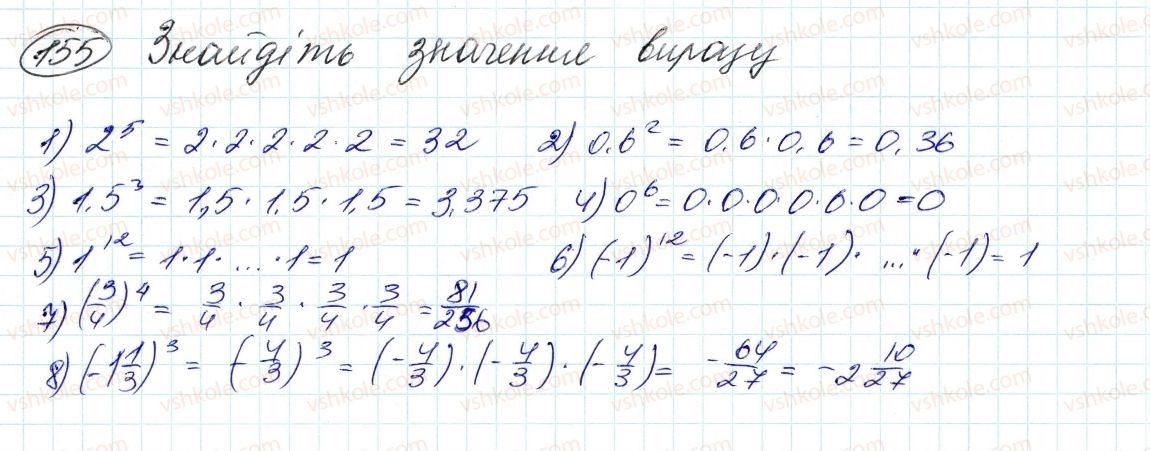 155 Знайдіть значення виразу
1) 2⁵ = 2·2·2·2·2 = 32 2) 0,6² = 0,6·0,6 = 0,36
3) 1,5³ = 1,5·1,5·1,5 = 3,375 4) 0⁶ = 0·0·0·0·0·0 = 0
5) 1¹² = 1·1·...·1 = 1 6) (-1)¹² = (-1)·(-1)·...·(-1) = 1
7) (3/4)⁴ = 3/4 · 3/4 · 3/4 · 3/4 = 81/256
8) (-1 1/3)³ = (-4/3)³ = (-4/3)·(-4/3)·(-4/3) = -64/27 = -2 10/27
vshkole.com